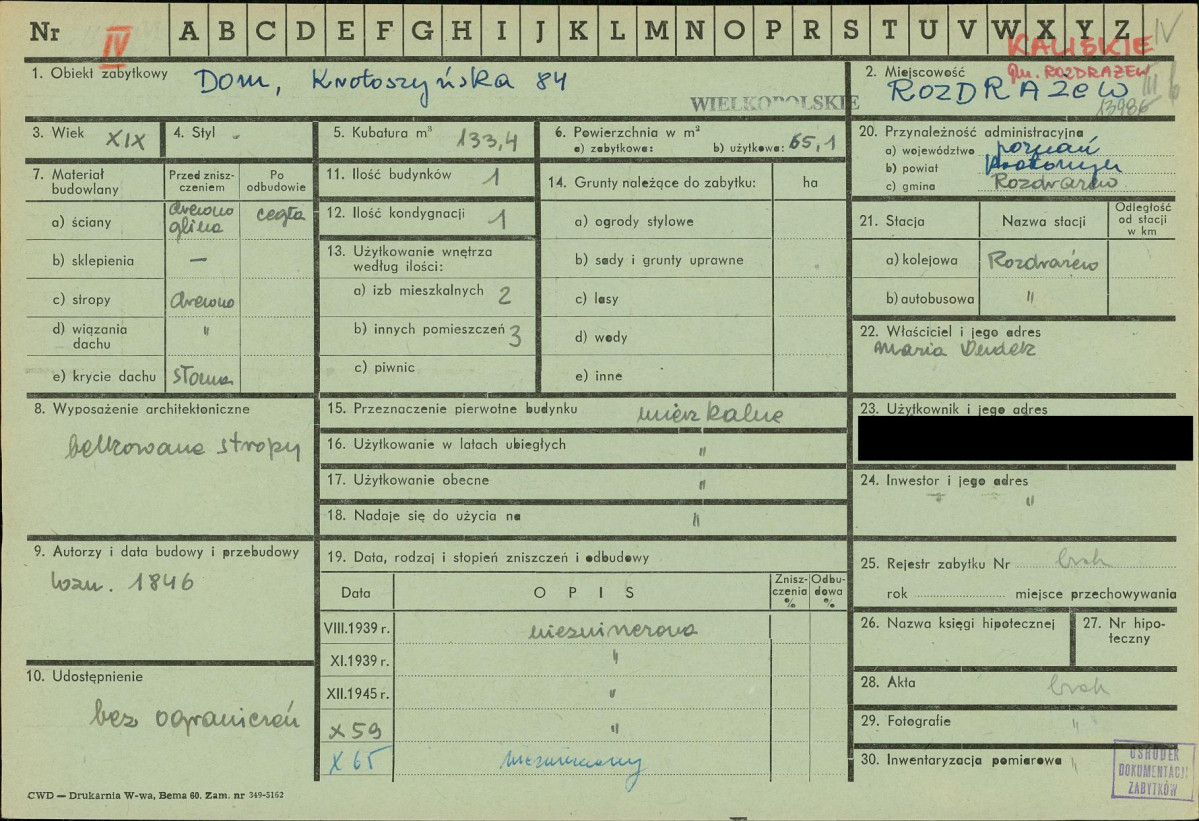 Nr IV A B C D E F G H I J K L M N O P R S T U V W X Y Z IV
KALISKIE
1. Obiekt zabytkowy Dom, Krotoszyńska 84
WIELKOPOLSKIE
2. Miejscowość gm. ROZDRAŻEW
ROZDRAŻEW
3. Wiek XIX
4. Styl -
5. Kubatura m³ 133,4
6. Powierzchnia w m²
a) zabytkowa: b) użytkowa: 65,1
20. Przynależność administracyjna
a) województwo poznań
b) powiat
c) gmina Rozdrażew
7. Materiał budowlany
Przed znisz-
czeniem
Po
odbudowie
a) ściany drewno glina cegła
b) sklepienia —
c) stropy drewno
d) wiązania
dachu "
e) krycie dachu słoma
11. Ilość budynków 1
12. Ilość kondygnacji 1
13. Użytkowanie wnętrza
według ilości:
a) izb mieszkalnych 2
b) innych pomieszczeń 3
c) piwnic
14. Grunty należące do zabytku: ha
a) ogrody stylowe
b) sady i grunty uprawne
c) lasy
d) wody
e) inne
21. Stacja Nazwa stacji
Odległość
od stacji
w km
a) kolejowa Rozdrażew
b) autobusowa "
22. Właściciel i jego adres
Maria
8. Wyposażenie architektoniczne
belkowane stropy
15. Przeznaczenie pierwotne budynku mieszkalne
16. Użytkowanie w latach ubiegłych "
17. Użytkowanie obecne "
18. Nadaje się do użycia na "
23. Użytkownik i jego adres
24. Inwestor i jego adres
"
9. Autorzy i data budowy i przebudowy
wzn. 1846
10. Udostępnienie
bez ograniczeń
19. Data, rodzaj i stopień zniszczeń i odbudowy
Data OPIS
Znisz-
czenia
%
Odbu-
dowa
%
VIII.1939 r.
XI.1939 r. "
XII.1945 r. "
X 59 "
X 65
25. Rejestr zabytku Nr brak
rok miejsce przechowywania
26. Nazwa księgi hipotecznej
27. Nr hipo-
teczny
28. Akta brak
29. Fotografie "
30. Inwentaryzacja pomiarowa "
OŚRODEK
DOKUMENTACJI
ZABYTKÓW
CWD — Drukarnia W-wa, Bema 60. Zam. nr 349-5162